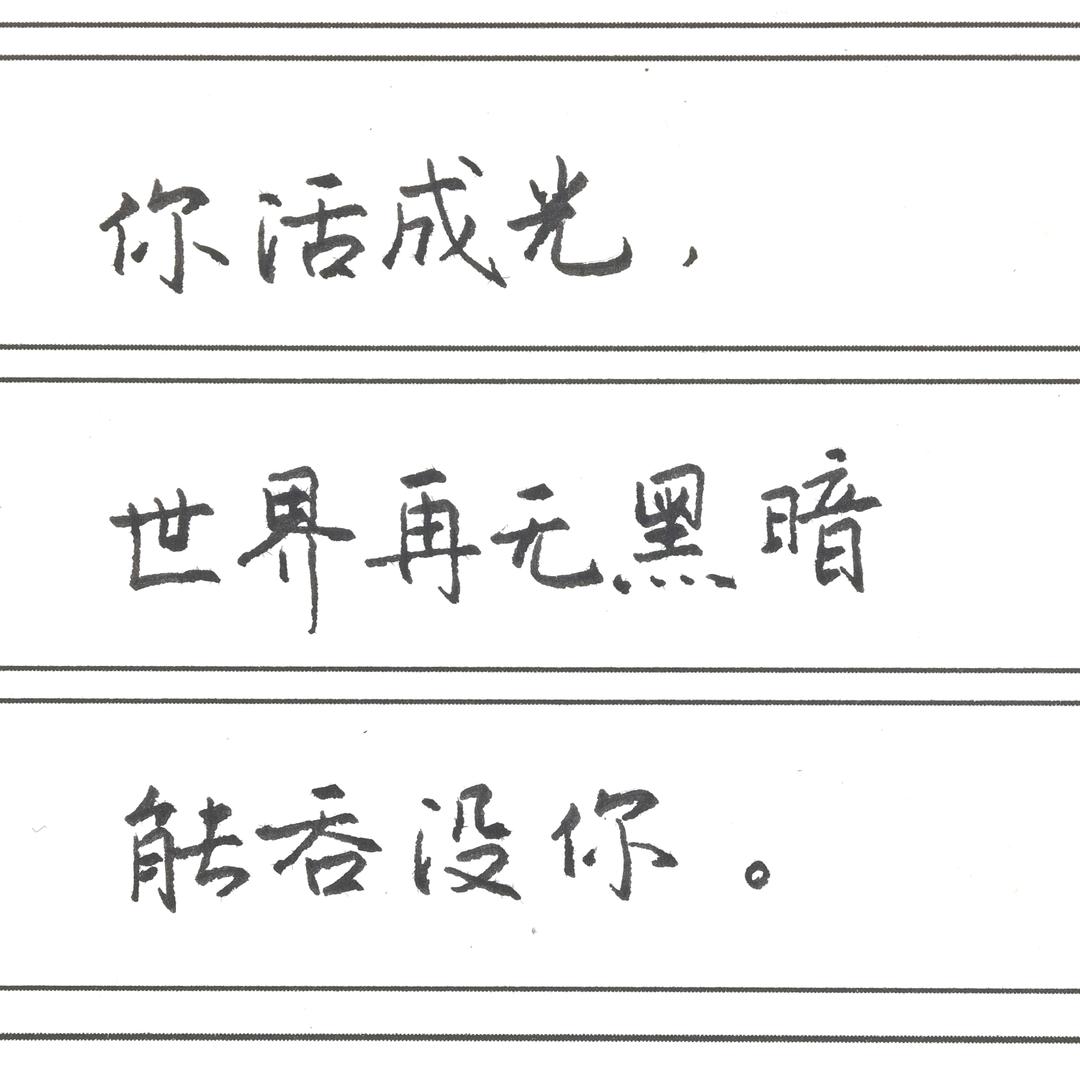 你活成光，
世界再无黑暗
能吞没你。